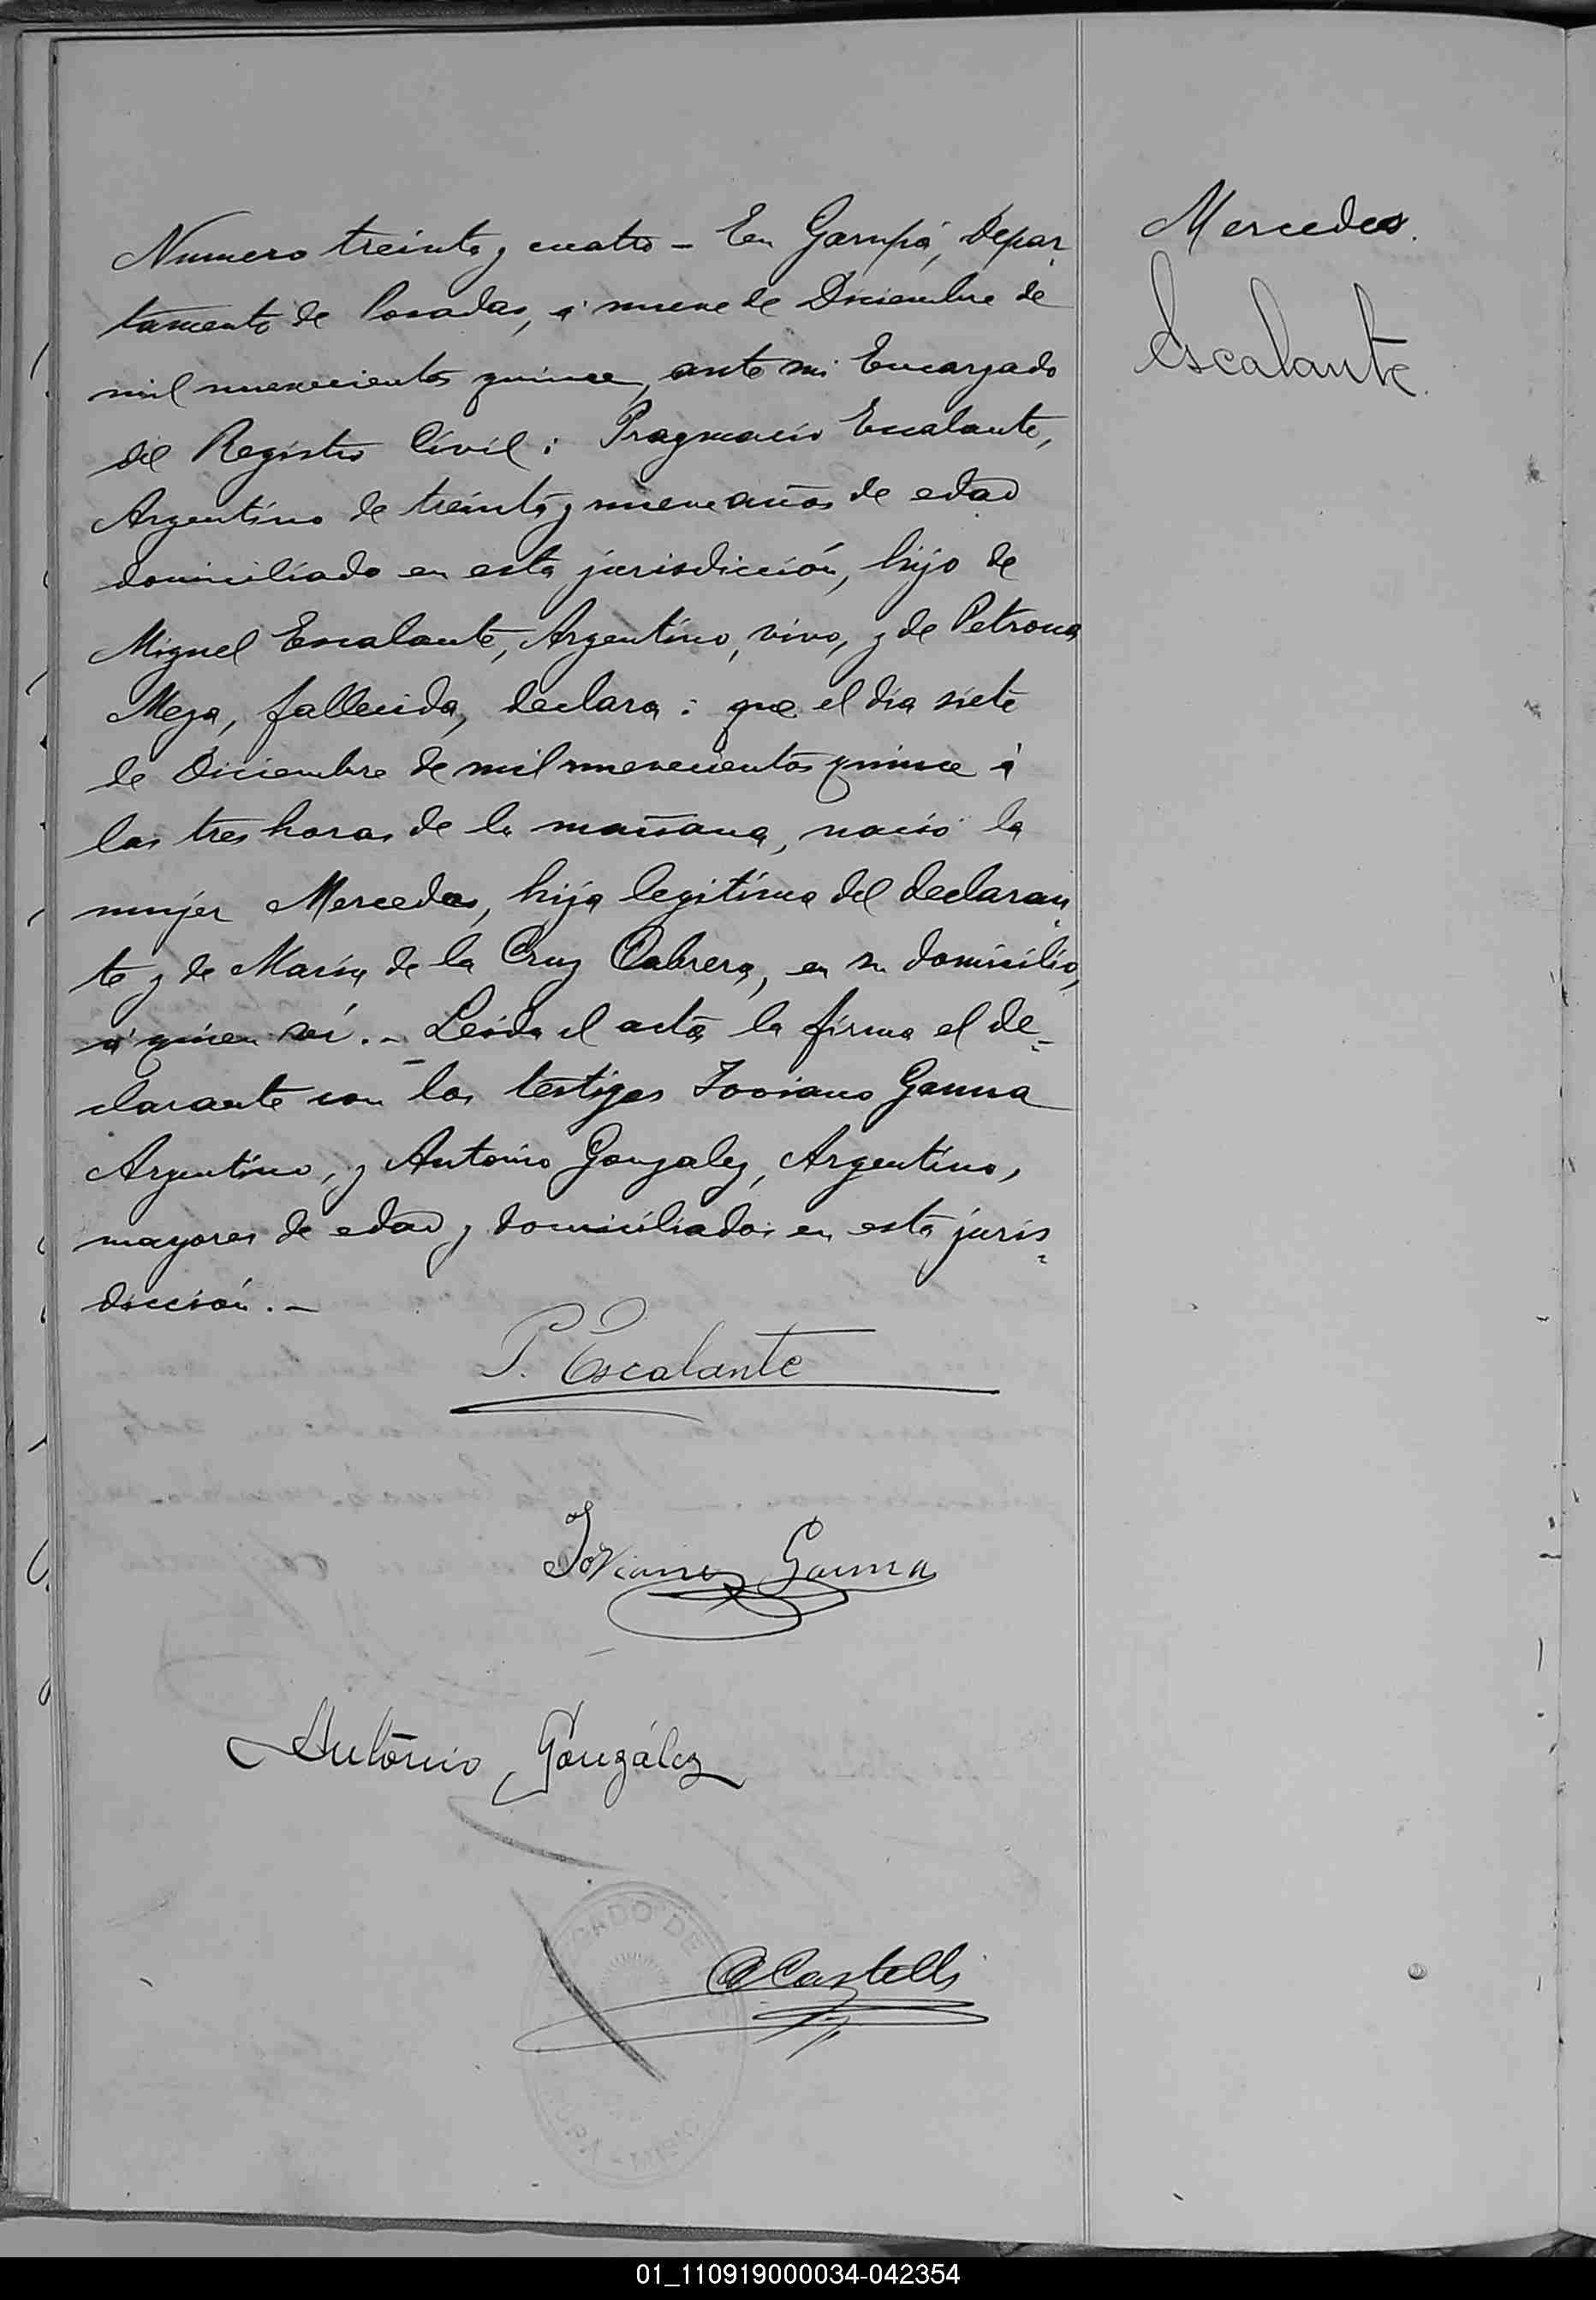 Numero treinta y cuatro - En Garupá, Depar-
tamento de Posadas, á nueve de Diciembre de
mil novecientos quince, ante mi Encargado
del Registro Civil: Pragmacio Escalante,
Argentino de treinta y nueve años de edad
domiciliado en esta jurisdicción, hijo de
Miguel Escalante, Argentino, vivo, y de Petrona
Meza, fallecida, declara: que el dia siete
de Diciembre de mil novecientos quince á
las tres horas de la mañana, nació la
mujer Mercedes, hija legitima del declaran-
te y de María de la Cruz Cabrera, en su domicilio,
á quien ví. - Leida el acta la firma el de-
clarante con los testigos Joviano Gauna
Argentino, y Antonio Gonzalez, Argentino,
mayores de edad y domiciliados en esta juris-
dicción. -
P. Escalante
Joviano Gauna
Antonio González
Castelli
Mercedes.
Escalante.
01_110919000034-042354